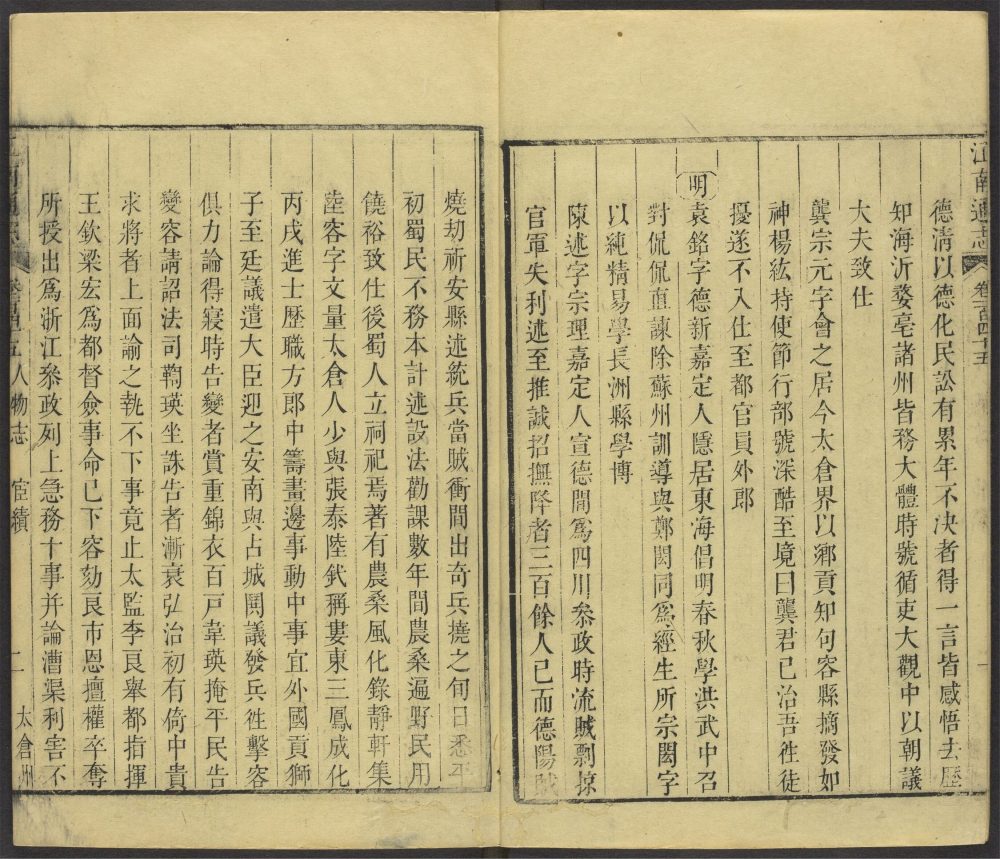 江南通志 卷一百四十五
德淸以德化民訟有累年不決者得一言皆感悟去歷
知海沂婺亳諸州皆務大體時號循吏大觀中以朝議
大夫致仕
龔宗元字會之居今太倉界以鄕貢知句容縣摘發如
神楊紘持使節行部號深酷至境曰龔君已治吾徃徒
擾遂不入仕至都官員外郎
明 袁銘字德新嘉定人隱居東海倡明春秋學洪武中召
對侃侃直諫除蘇州訓導與鄭閎同爲經生所宗閎字
以純精易學長洲縣學博
陳述字宗理嘉定人宣德間爲四川叅政時流賊剽掠
官軍失利述至推誠招撫降者三百餘人已而德陽賊
燒劫祈安縣述統兵當賊衝間出奇兵撓之旬日悉平
初蜀民不務本計述設法勸課數年間農桑遍野民用
饒裕致仕後蜀人立祠祀焉著有農桑風化錄靜軒集
陸容字文量太倉人少與張泰陸釴稱婁東三鳳成化
丙戌進士歷職方郎中籌畫邊事動中事宜外國貢獅
子至廷議遣大臣迎之安南與占城鬩議發兵徃擊容
俱力論得寢時告變者賞重錦衣百戸韋瑛掩平民告
變容請詔法司鞫瑛坐誅告者漸衰弘治初有倚中貴
求將者上面諭之執不下事竟止太監李良舉都指揮
王欽梁宏爲都督僉事命已下容劾良市恩擅權卒奪
所授出爲浙江叅政列上急務十事并論漕渠利害不
人物志 宦績 二 太倉州